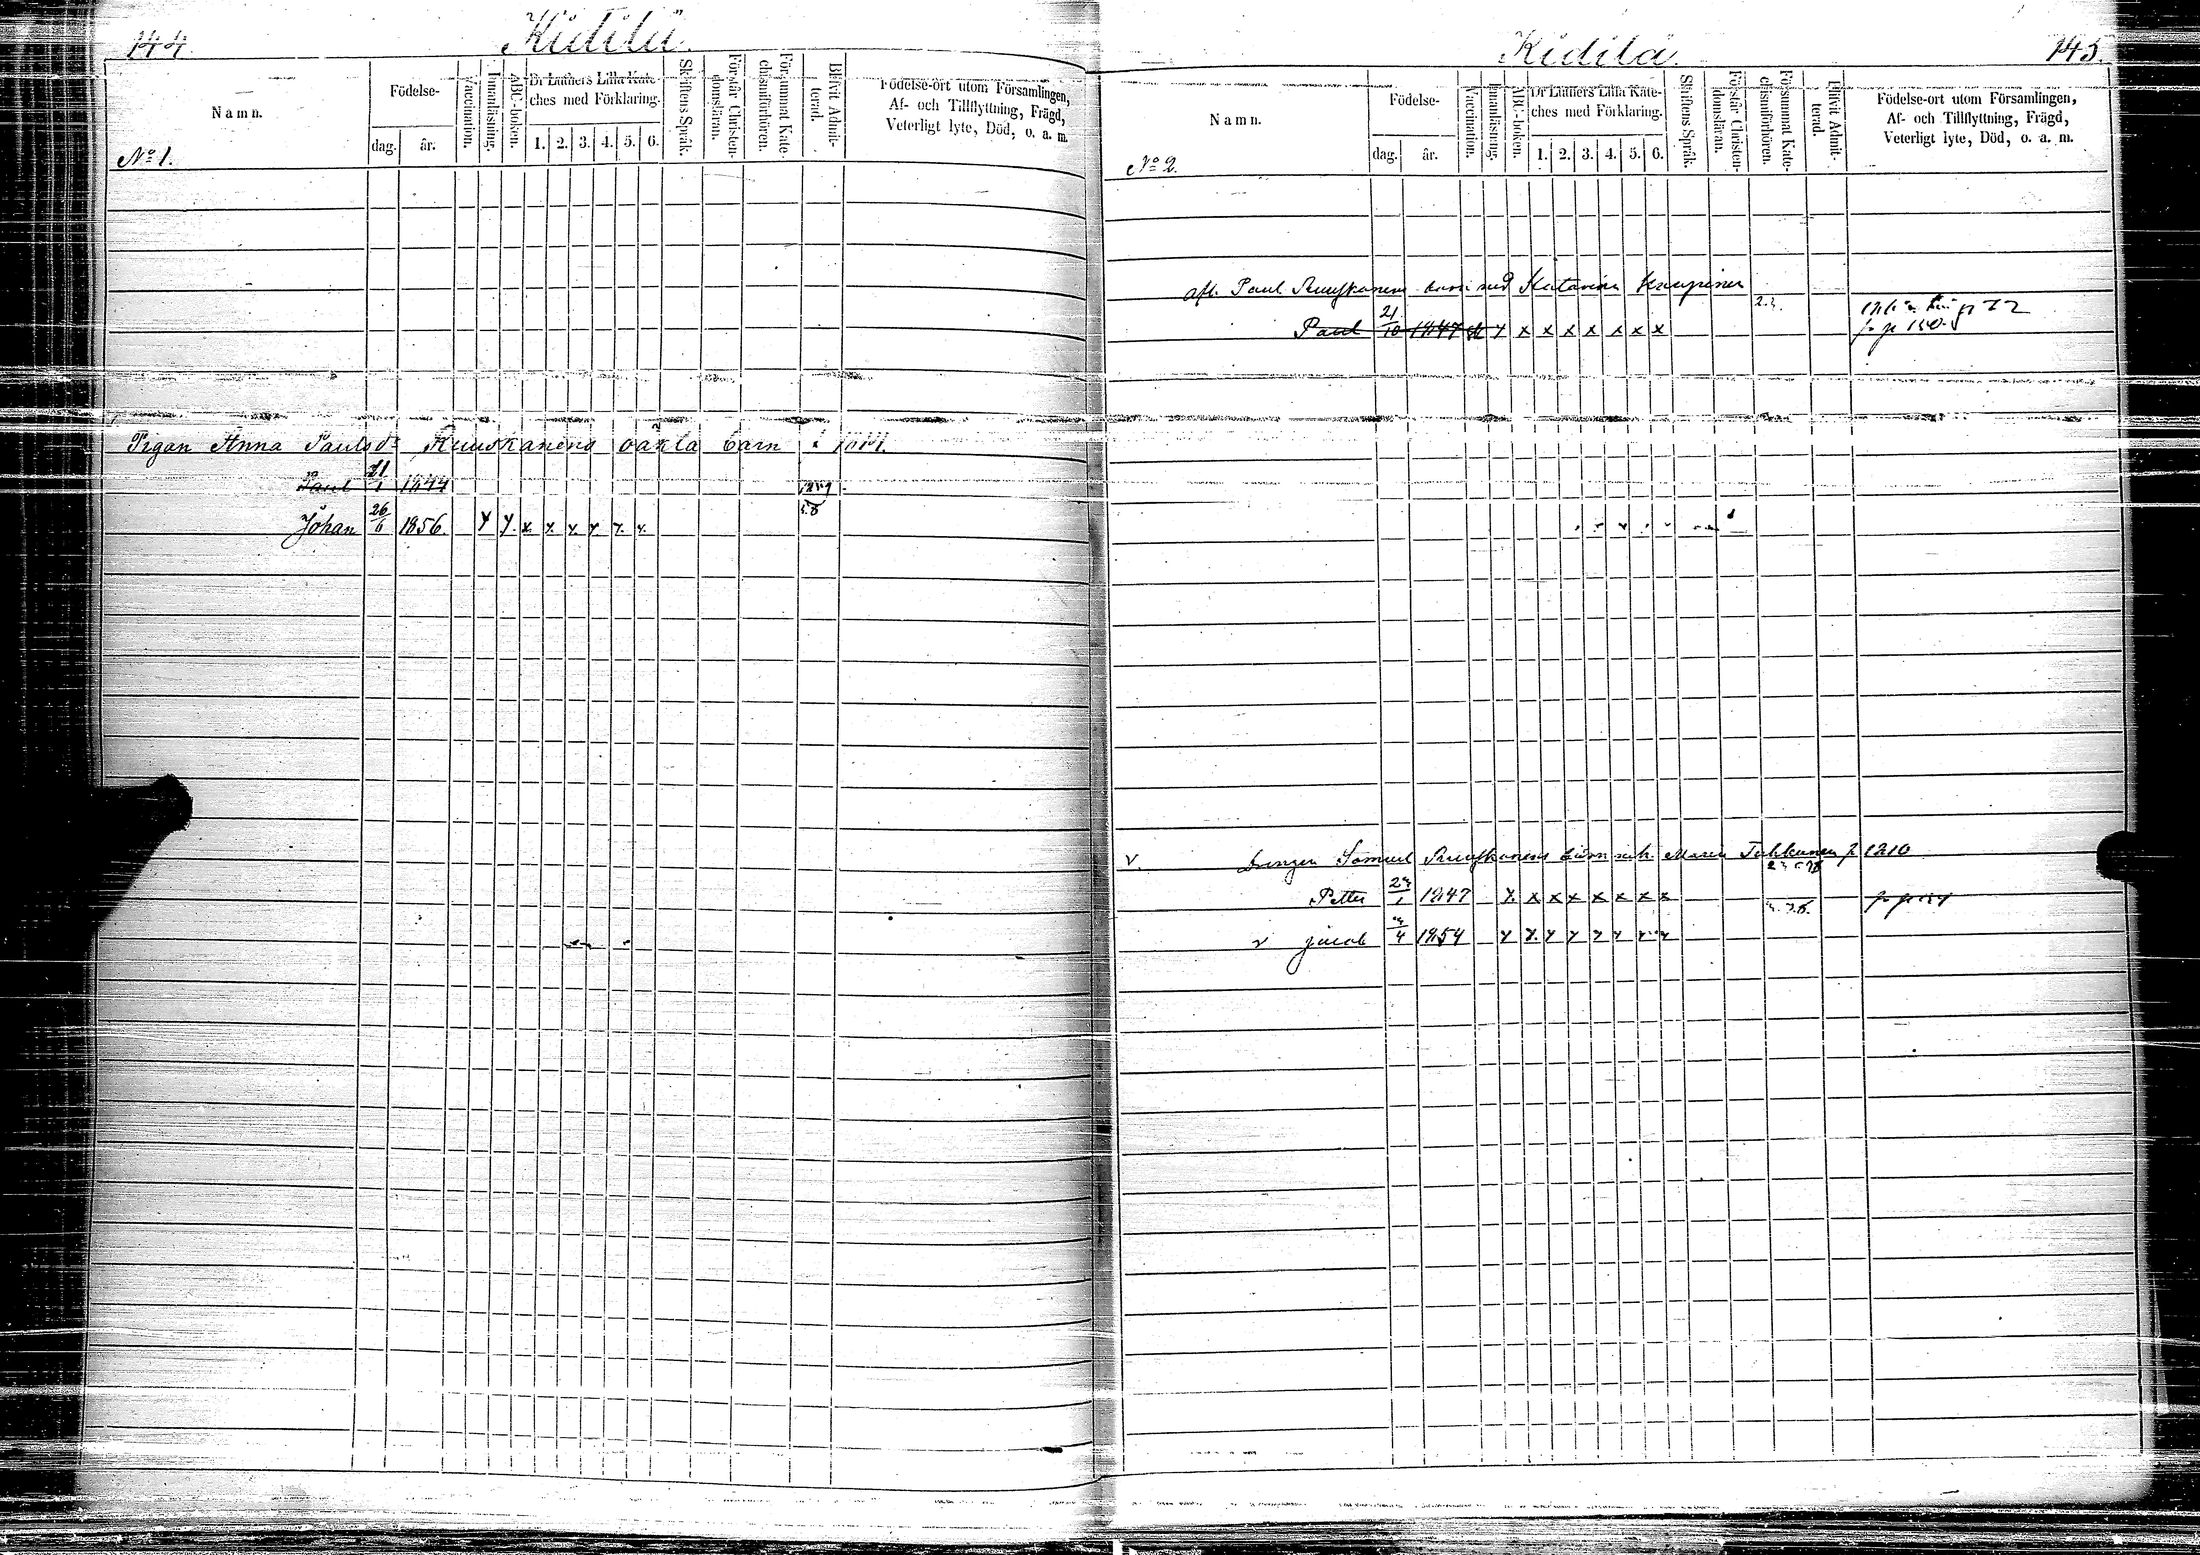 144.
Kidilä
Namn.
Födelse-
dag.
år.
Vaccination.
Innanläsning.
ABC-boken.
Dr Luthers Lilla Kate-
ches med Förklaring.
1. 2. 3. 4. 5. 6.
Skriftens Språk.
Förstår Christen-
domsläran.
Försummat Kate-
chismiförhören.
Blivit Admit-
terad.
Födelse-ort utom Församlingen,
Af- och Tillflyttning, Frägd,
Veterligt lyte, Död, o. a. m.
No 1.
Pigan Anna Paulsd:r Ruuskanens oäkta barn
Paul 21/1 1844
Johan 26/6 1856. x x x x x x x x
145.
Kidilä
Namn.
Födelse-
dag.
år.
Vaccination.
Innanläsning.
ABC-boken.
Dr Luthers Lilla Kate-
ches med Förklaring.
1. 2. 3. 4. 5. 6.
Skriftens Språk.
Förstår Christen-
domsläran.
Försummat Kate-
chismiförhören.
Blivit Admit-
terad.
Födelse-ort utom Församlingen,
Af- och Tillflyttning, Frägd,
Veterligt lyte, Död, o. a. m.
No 2.
Paul Ruuskanens barn med Katarina Kaupinen
Paul 21/10 1847 x x x x x x x x
v. Drengen Samuel Ruuskanens barn med Maria Tuhkunen p 1210
Petter 1847 x x x x x x x x
v Jacob 1854 x x x x x x x x